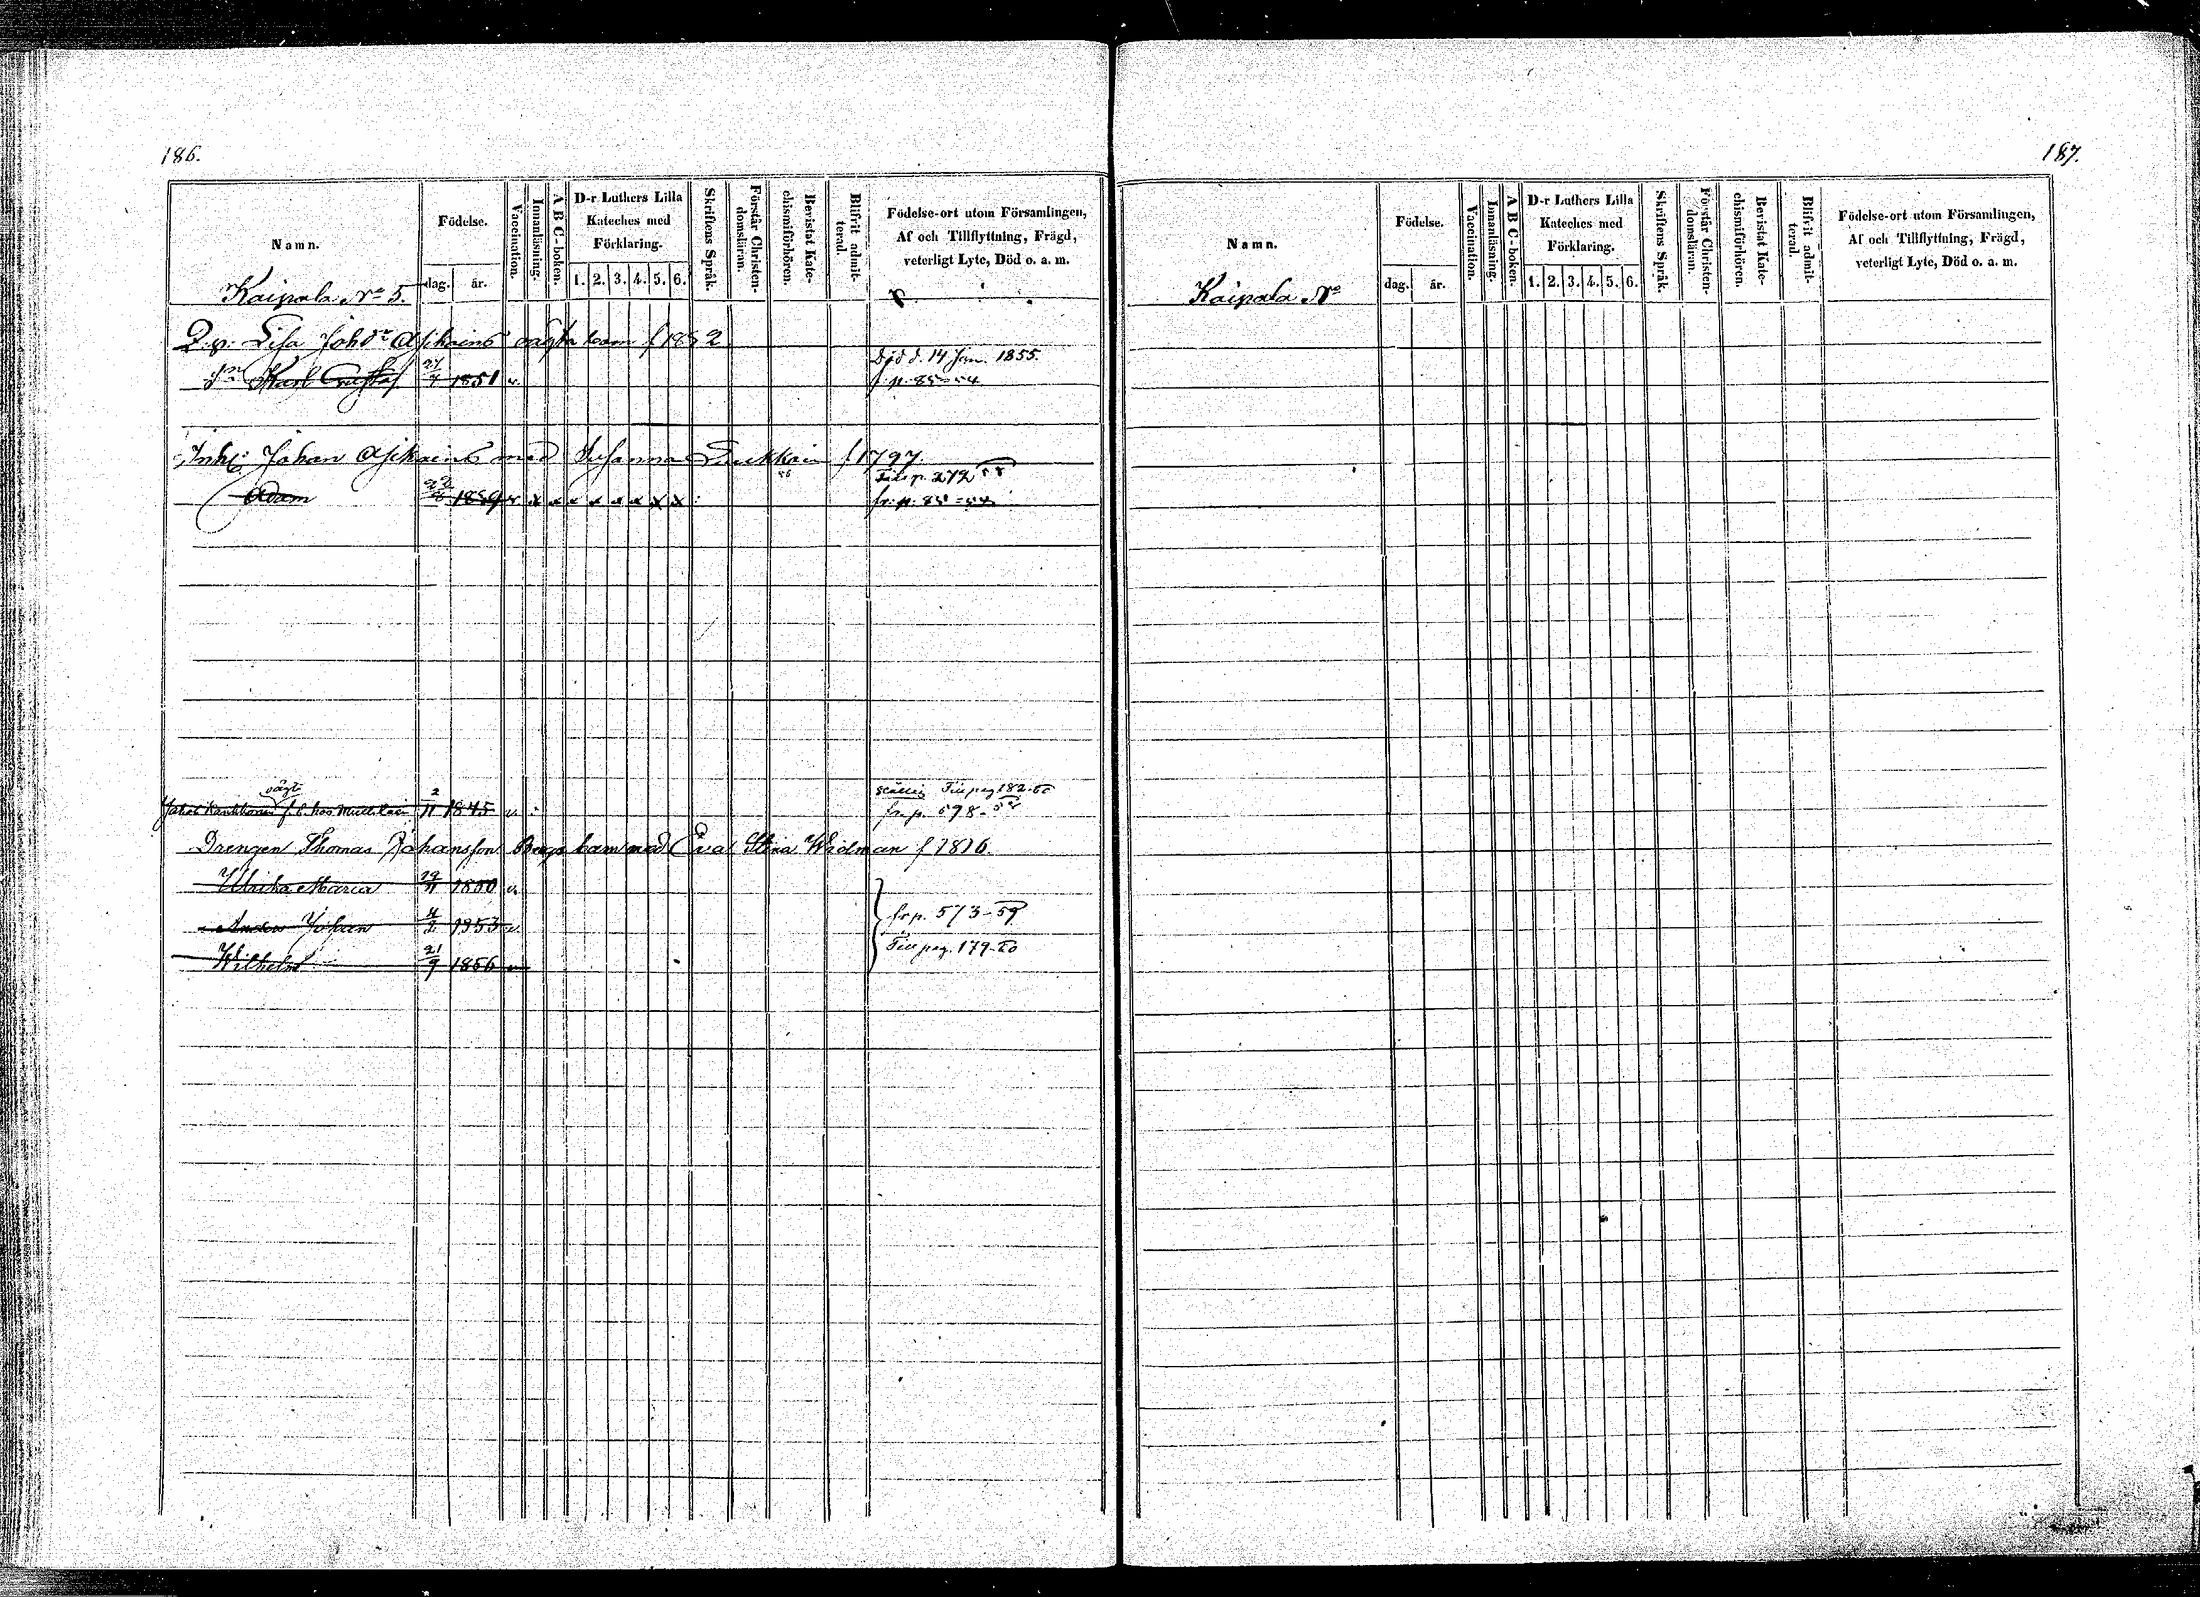 186.
Namn.
Födelse.
dag. år.
Vaccination.
Innanläsning.
A B C-boken.
D-r Luthers Lilla
Kateches med
Förklaring.
1. 2. 3. 4. 5. 6.
Skriftens Språk.
Förstår Christen-
domsläran.
Bevistat Kate-
chismiförhören.
Blifvit admit-
terad.
Födelse-ort utom Församlingen,
Af och Tillflyttning, Frägd,
veterligt Lyte, Död o. a. m.
Kaipala No 5.
Q.p. Lisa Johds oägta barn f 1852
Död d. 14 Jan. 1855.
Karl Gustaf 1851 v. f. p. 85-54
Inh. Johan med Susanna f 1797.
Tills p. 272
Adam v. x x x x x x x x fr. p. 85-54
oägta
2
Jakob f. E. hos 11 1845 v. Till pag 182-60
fr. p. 698-58
Drengen Thomas Johansson barn med Eva Stina Widman f 1816.
Ulrika Maria 19/11 1850 v.
Anders Johan 1853 v. fr p. 573-59
Wilhelm 21/9 1856 v Till pag. 179-60
187.
Namn.
Födelse.
dag. år.
Vaccination.
Innanläsning.
A B C-boken.
D-r Luthers Lilla
Kateches med
Förklaring.
1. 2. 3. 4. 5. 6.
Skriftens Språk.
Förstår Christen-
domsläran.
Bevistat Kate-
chismiförhören.
Blifvit admit-
terad.
Födelse-ort utom Församlingen,
Af och Tillflyttning, Frägd,
veterligt Lyte, Död o. a. m.
Kaipala No